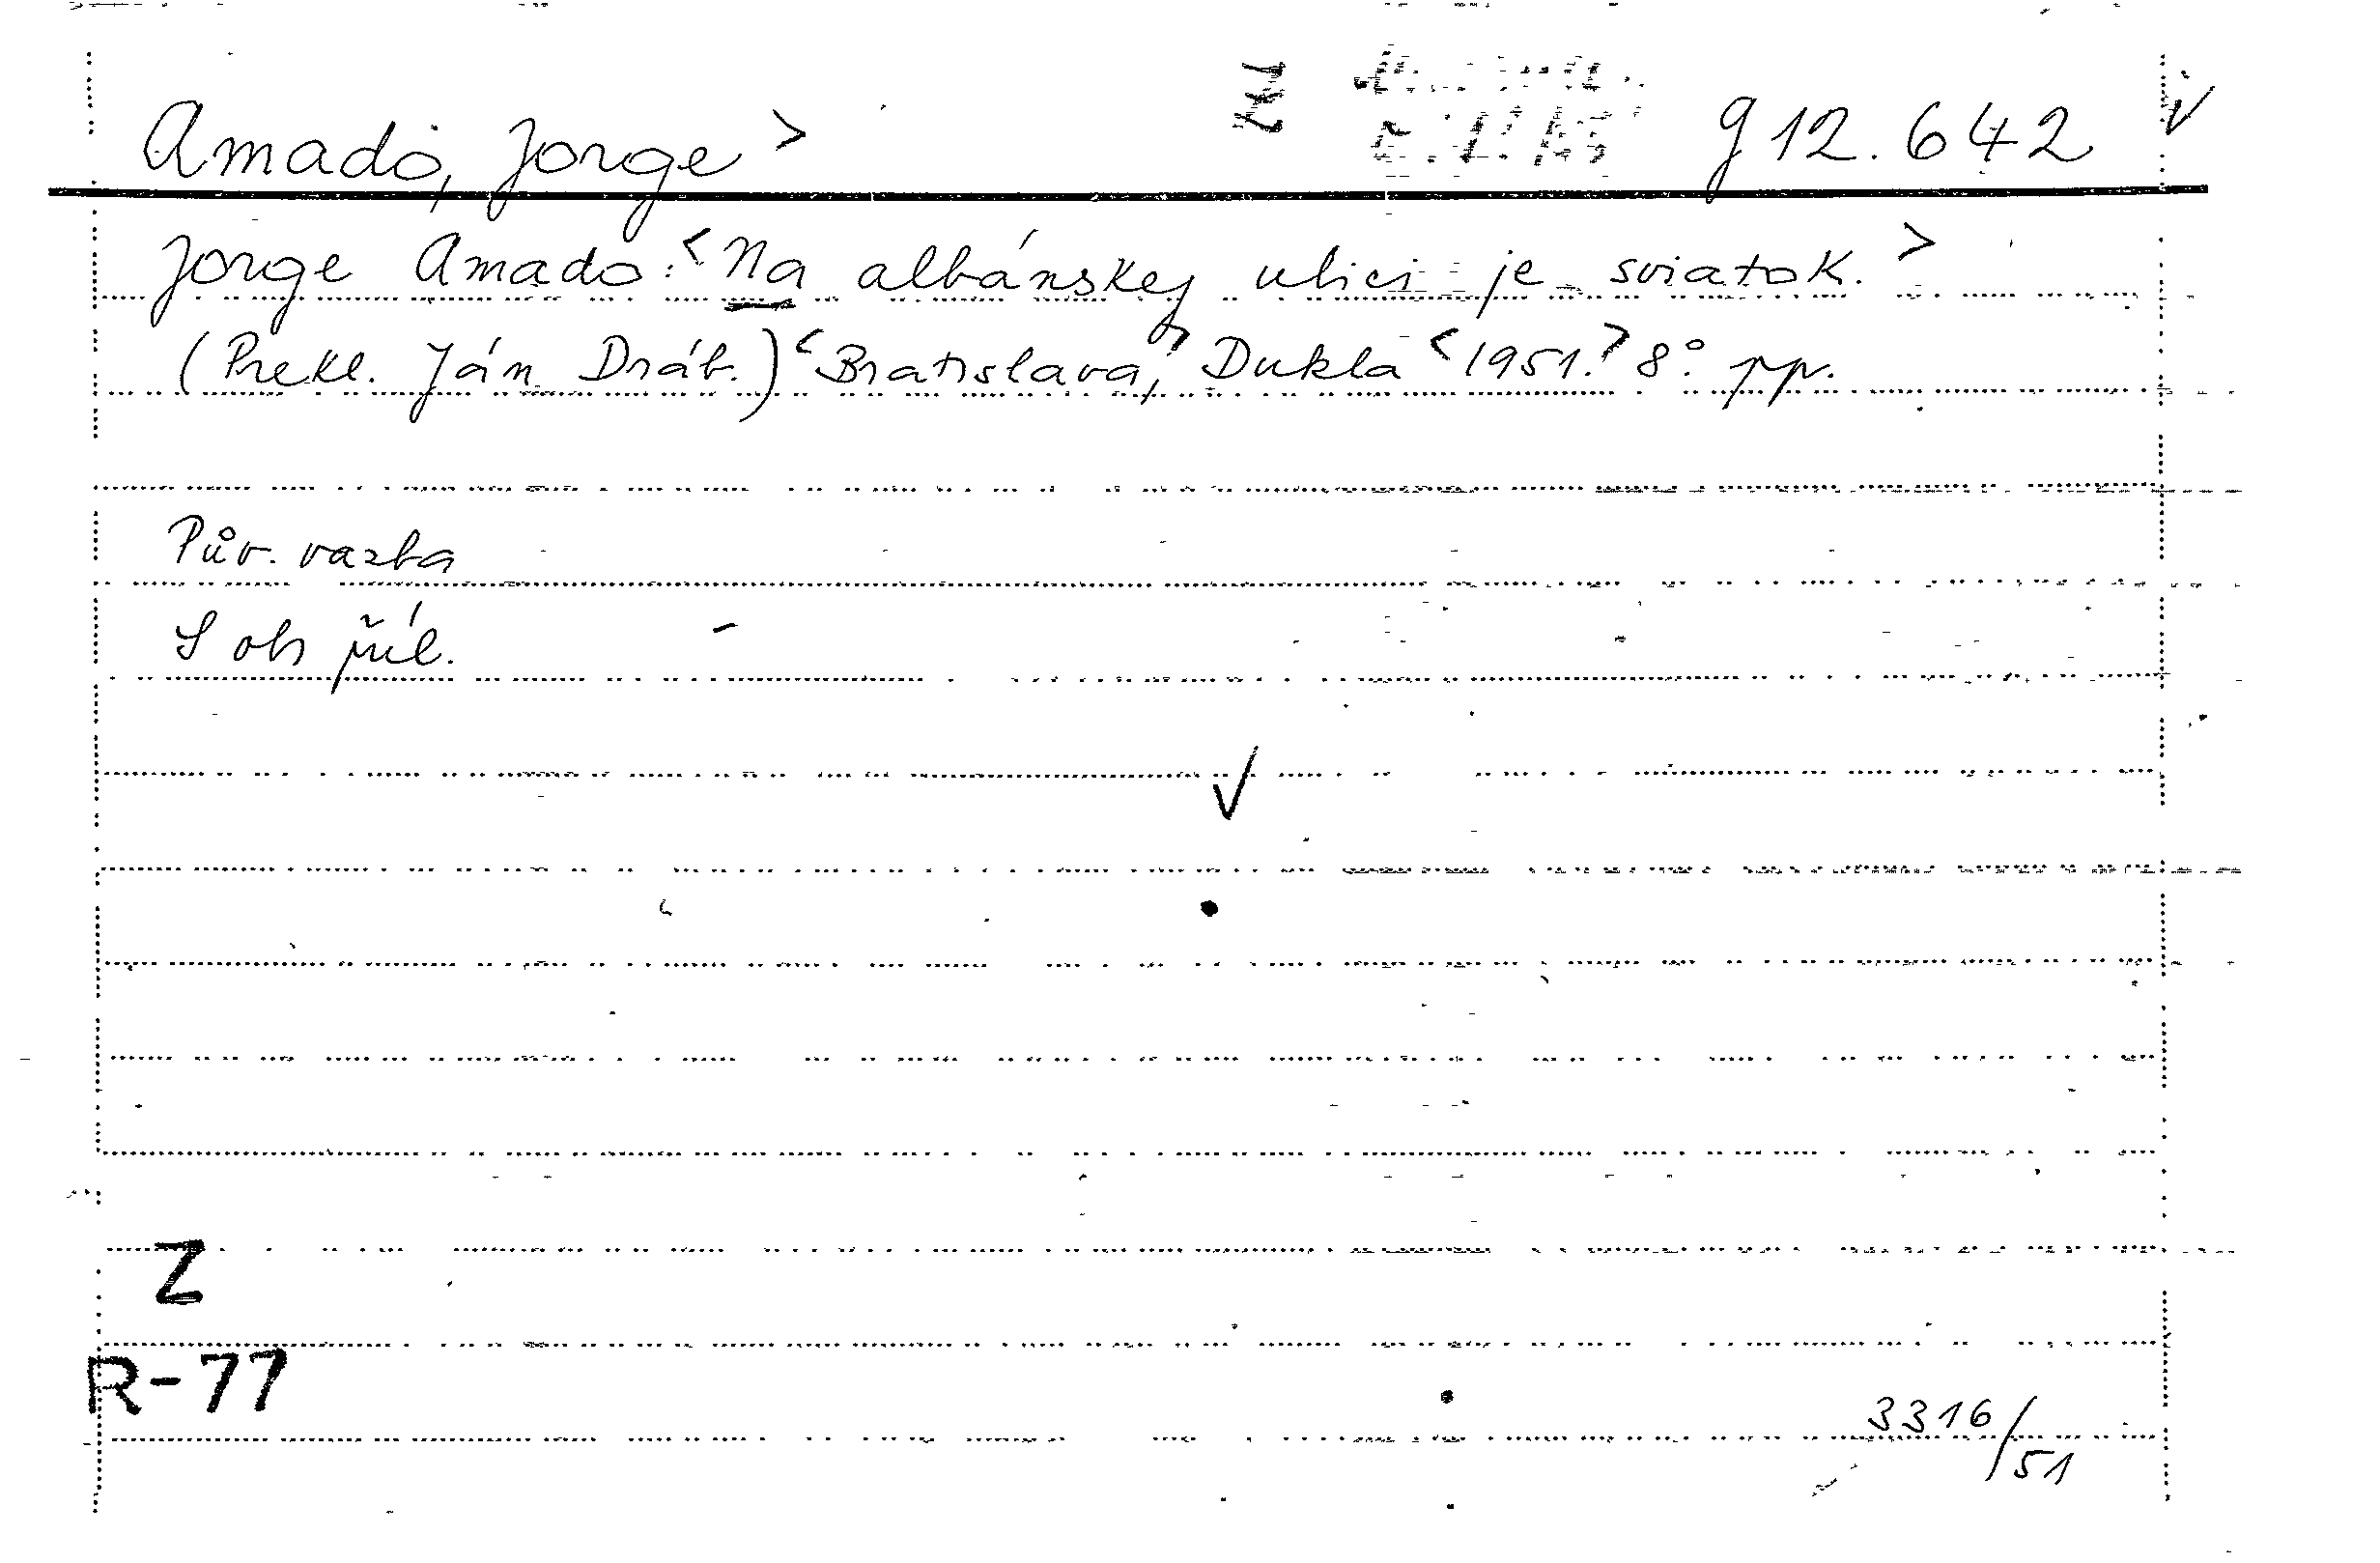 Amado, Jorge > g 12.642 √
Jorge Amado: <Na albánskej ulici je sviatok.>
(Prekl. Ján Dráb.) <Bratislava,> Dukla <1951.> 8° pp.
Pův. vazba
S ob příl.
√
Z
R-77
3316/51